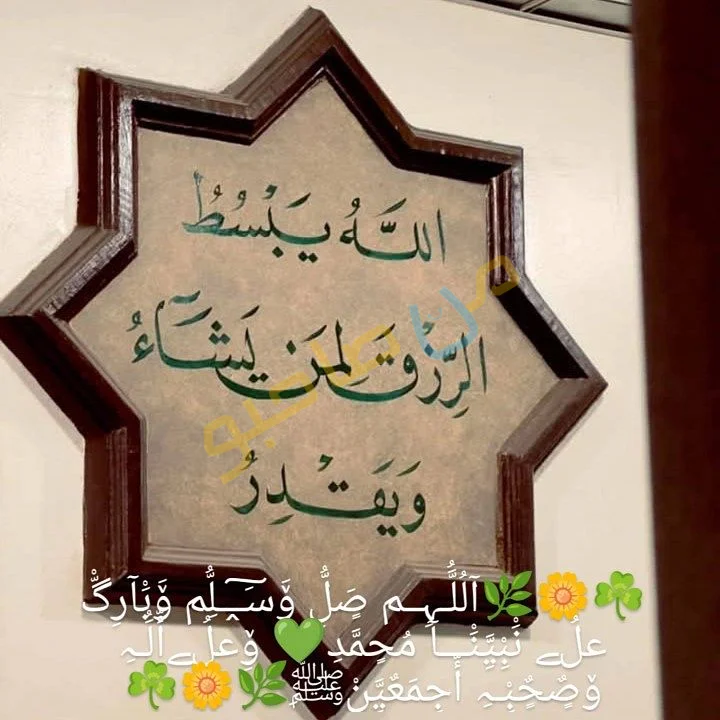 اللَّهُ يَبْسُطُ
الرِّزْقَ لِمَن يَشَآءُ
وَيَقْدِرُ
☘️🌼🌿آللَّهـم صَلِّ وَسَـلِّم وَبَآرِگْ
علے نَبِيِّنَـا مُحَمَّدِ💚 وَعلےآلُہِ
وَصَحْبِہِ أَجمَعَيَّنْﷺ🌿🌼☘️